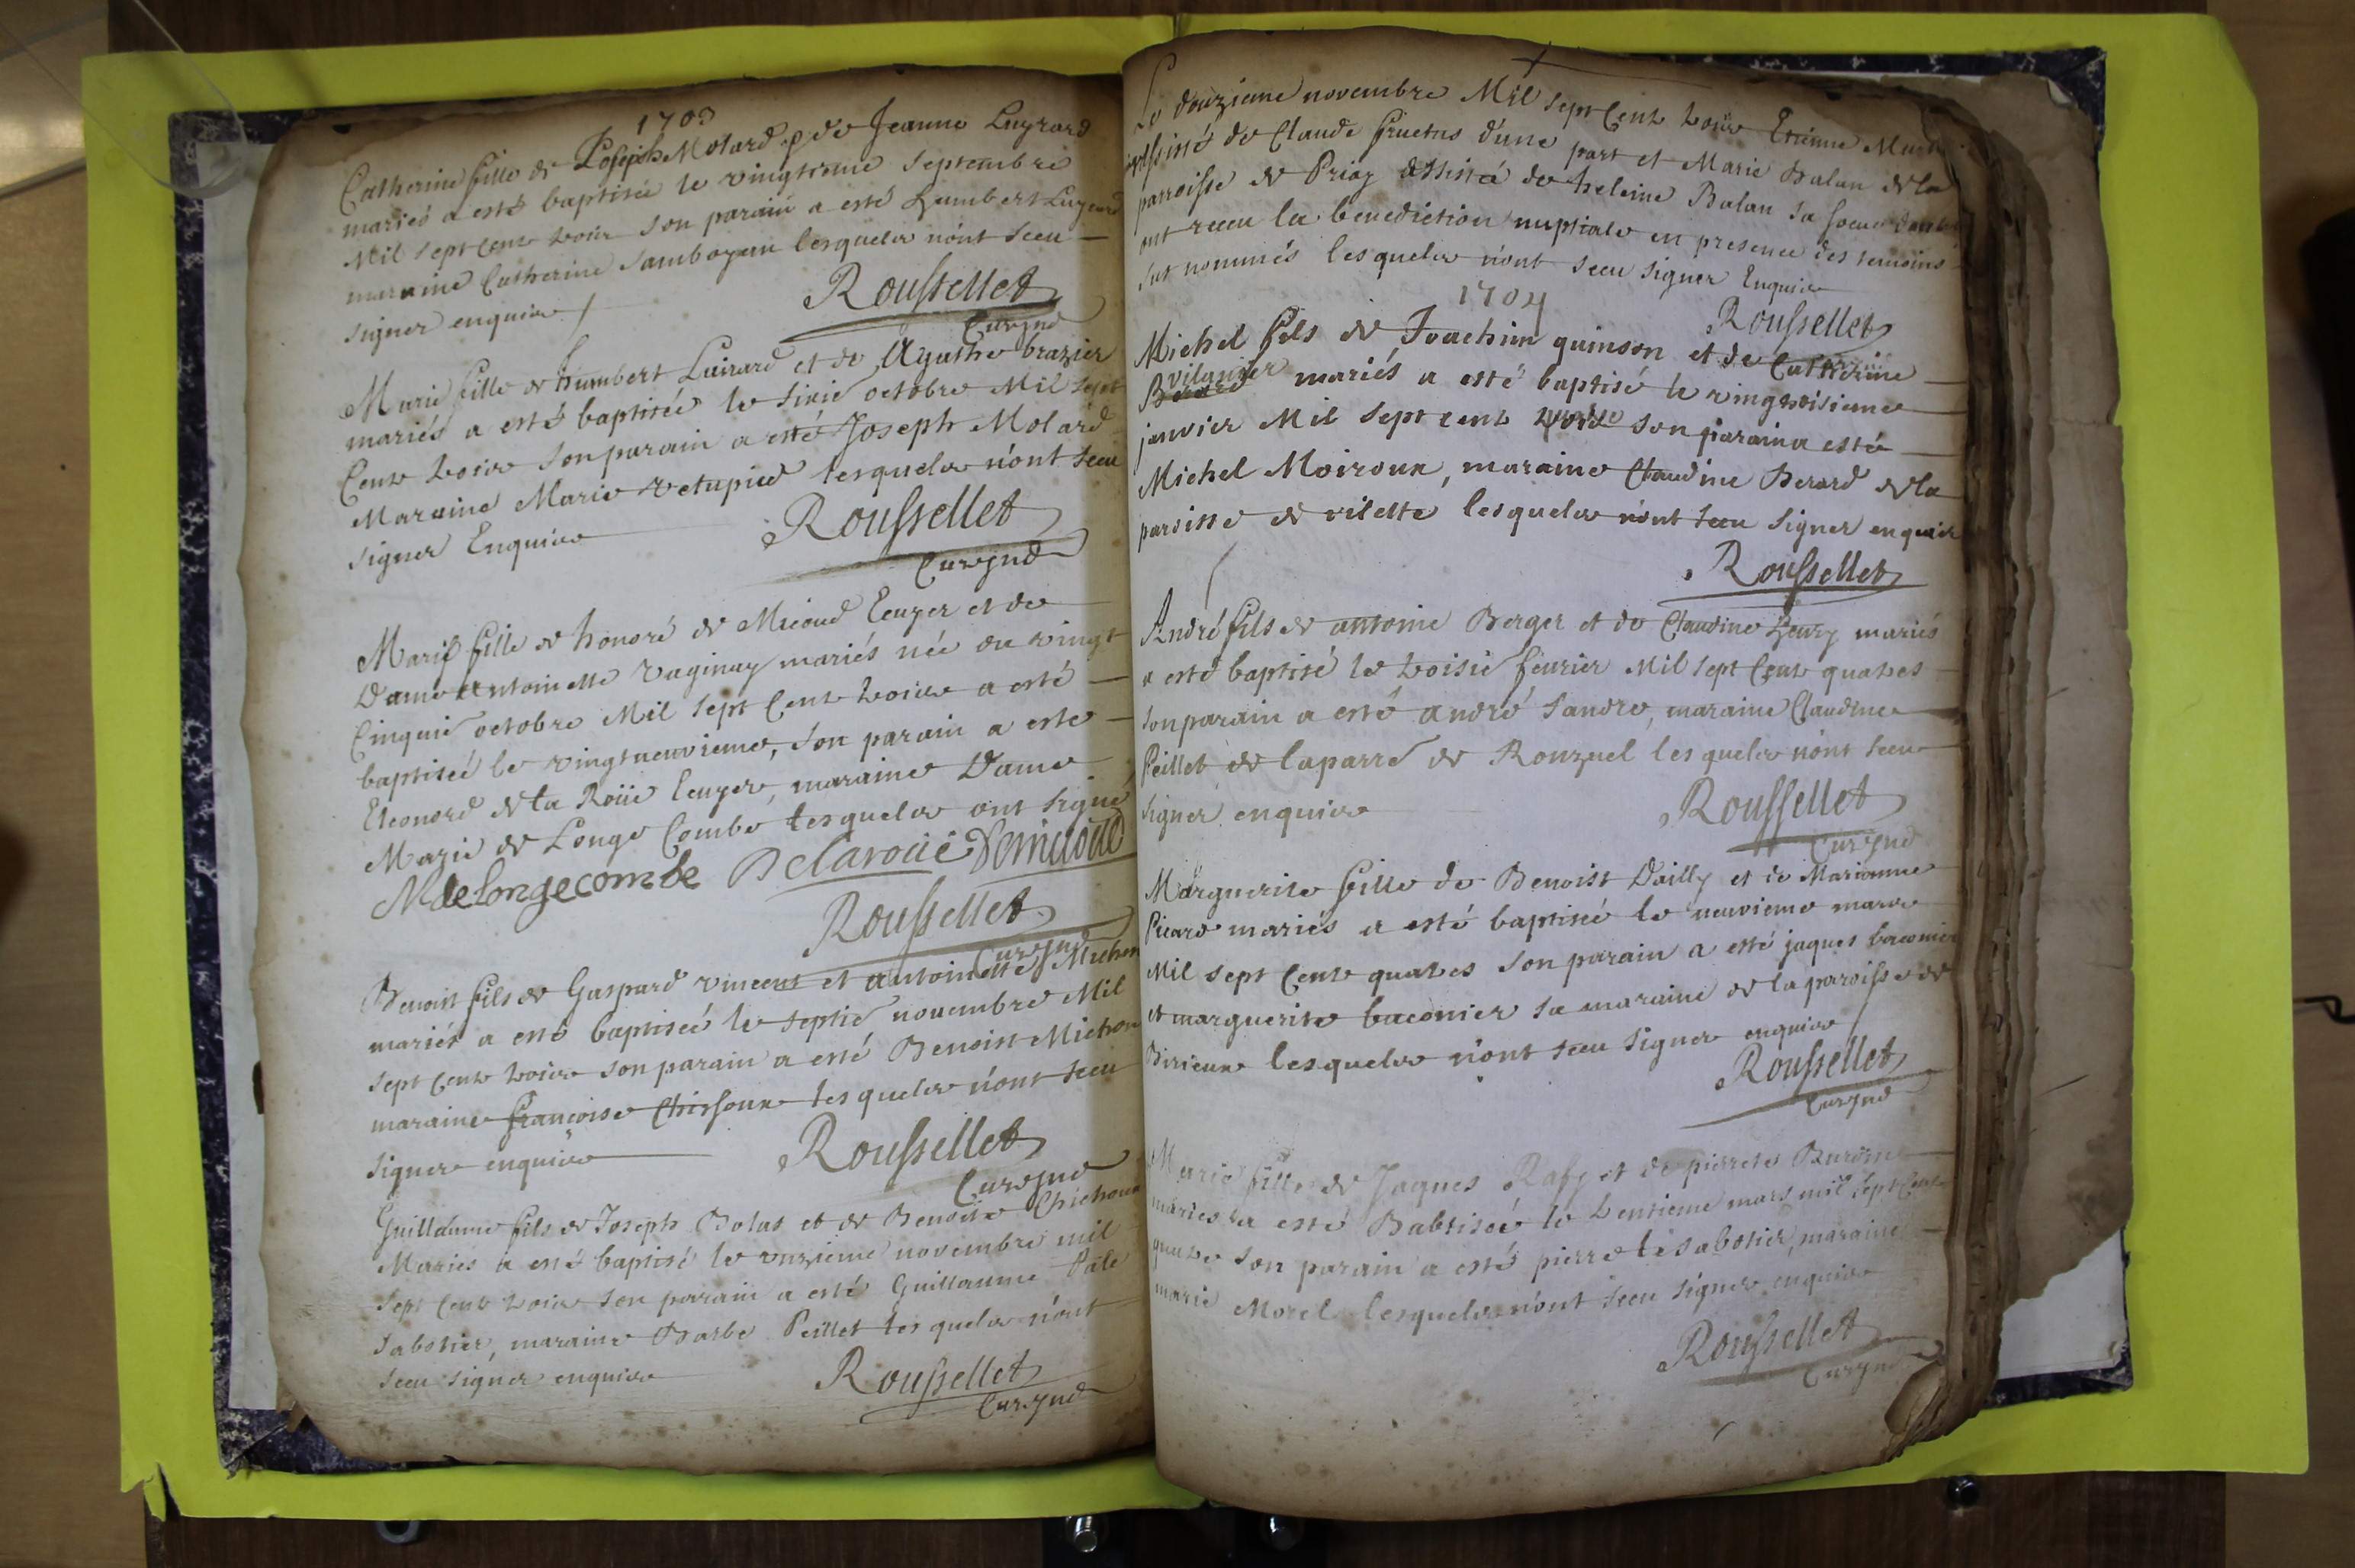 1703
Catherine fille de Joseph Molard & de Jeanne Luyrard
mariés a esté baptisée le vingtieme septembre
Mil sept cent trois son parain a esté humbert Luyrard
maraine Catherine Samboyau lesquels n'ont sceu
signer enquis
Roussellet
Curé jnd
Marie fille de humbert Luirard et de Agathe brazier
mariés a esté baptisée le sixié octobre Mil sept
Cent trois son parain a esté Joseph Molard
Maraine Marie lesquels n'ont sceu
signer Enquis
Roussellet
Curé jnd
Marie fille de honoré de Micoud Ecuyer et de
Dame antoinette Vaginay mariés née du vingt
Cinquié octobre Mil sept Cent trois a esté
baptiseé le vingtneuvieme, son parain a esté
Eleonord de la Roüe Ecuyer, maraine Dame
Marie de Longe Combe lesquels ont signé
M de Longecombe Delaroüe Demicoud
Roussellet
Curé jnd
Benoist fils de Gaspard vincent et antoinette Michon
mariés a esté baptiseé le septié novembre Mil
sept Cent trois son parain a esté Benoist Michon
maraine françoise Chissoux lesquels n'ont sceu
signer enquis
Roussellet
Curé jnd
Guillaume fils de Joseph Bolas et de Benoite Chichoux
Mariés a esté baptisé le unzieme novembre mil
sept Cent trois son parain a esté Guillaume Pale
Sabotier, maraine Barbe Peillet lesquels n'ont
sceu signer enquis
Roussellet
Curé jnd
Le douzieme novembre Mil sept Cent trois Etienne
assisté de Claude fructus d'une part et Marie Balan de la
paroisse de Priay assistée de heleine Balan sa soeur d'autre
ont receu la benediction nuptiale en presence des temoins
sus nommés lesquels n'ont sceu signer Enquis
Roussellet
1704
Michel fils de Joachim quinson et de Catherine
vilanier mariés a esté baptisé le vingtroisieme
janvier Mil sept cent quatre son parain a esté
Michel Moiroux, maraine Claudine Berard de la
paroisse de vilette lesquels n'ont sceu signer enquis
Roussellet
André fils de antoine Berger et de Claudine henry mariés
a esté baptisé le troisié fevrier Mil sept Cent quatres
son parain a esté andré Sandre, maraine Claudine
Peillet de la parre de Ronzuel lesquels n'ont sceu
signer enquis
Roussellet
Curé jnd
Marguerite fille de Benoist Dailly et de Marianne
Picard mariés a esté baptiseé le neuvieme mars
Mil sept Cent quatres son parain a esté jaques baconier
et marguerite baconier sa maraine de la paroisse de
Birieux lesquels n'ont sceu signer enquis
Roussellet
Curé jnd
Marie fille de Jaques Rafy et de pierrete
mariés a esté Babtiseé le trentieme mars mil sept Cent
quatre son parain a esté pierre le sabotier, maraine
marie Morel lesquels n'ont sceu signer enquis
Roussellet
Curé jnd